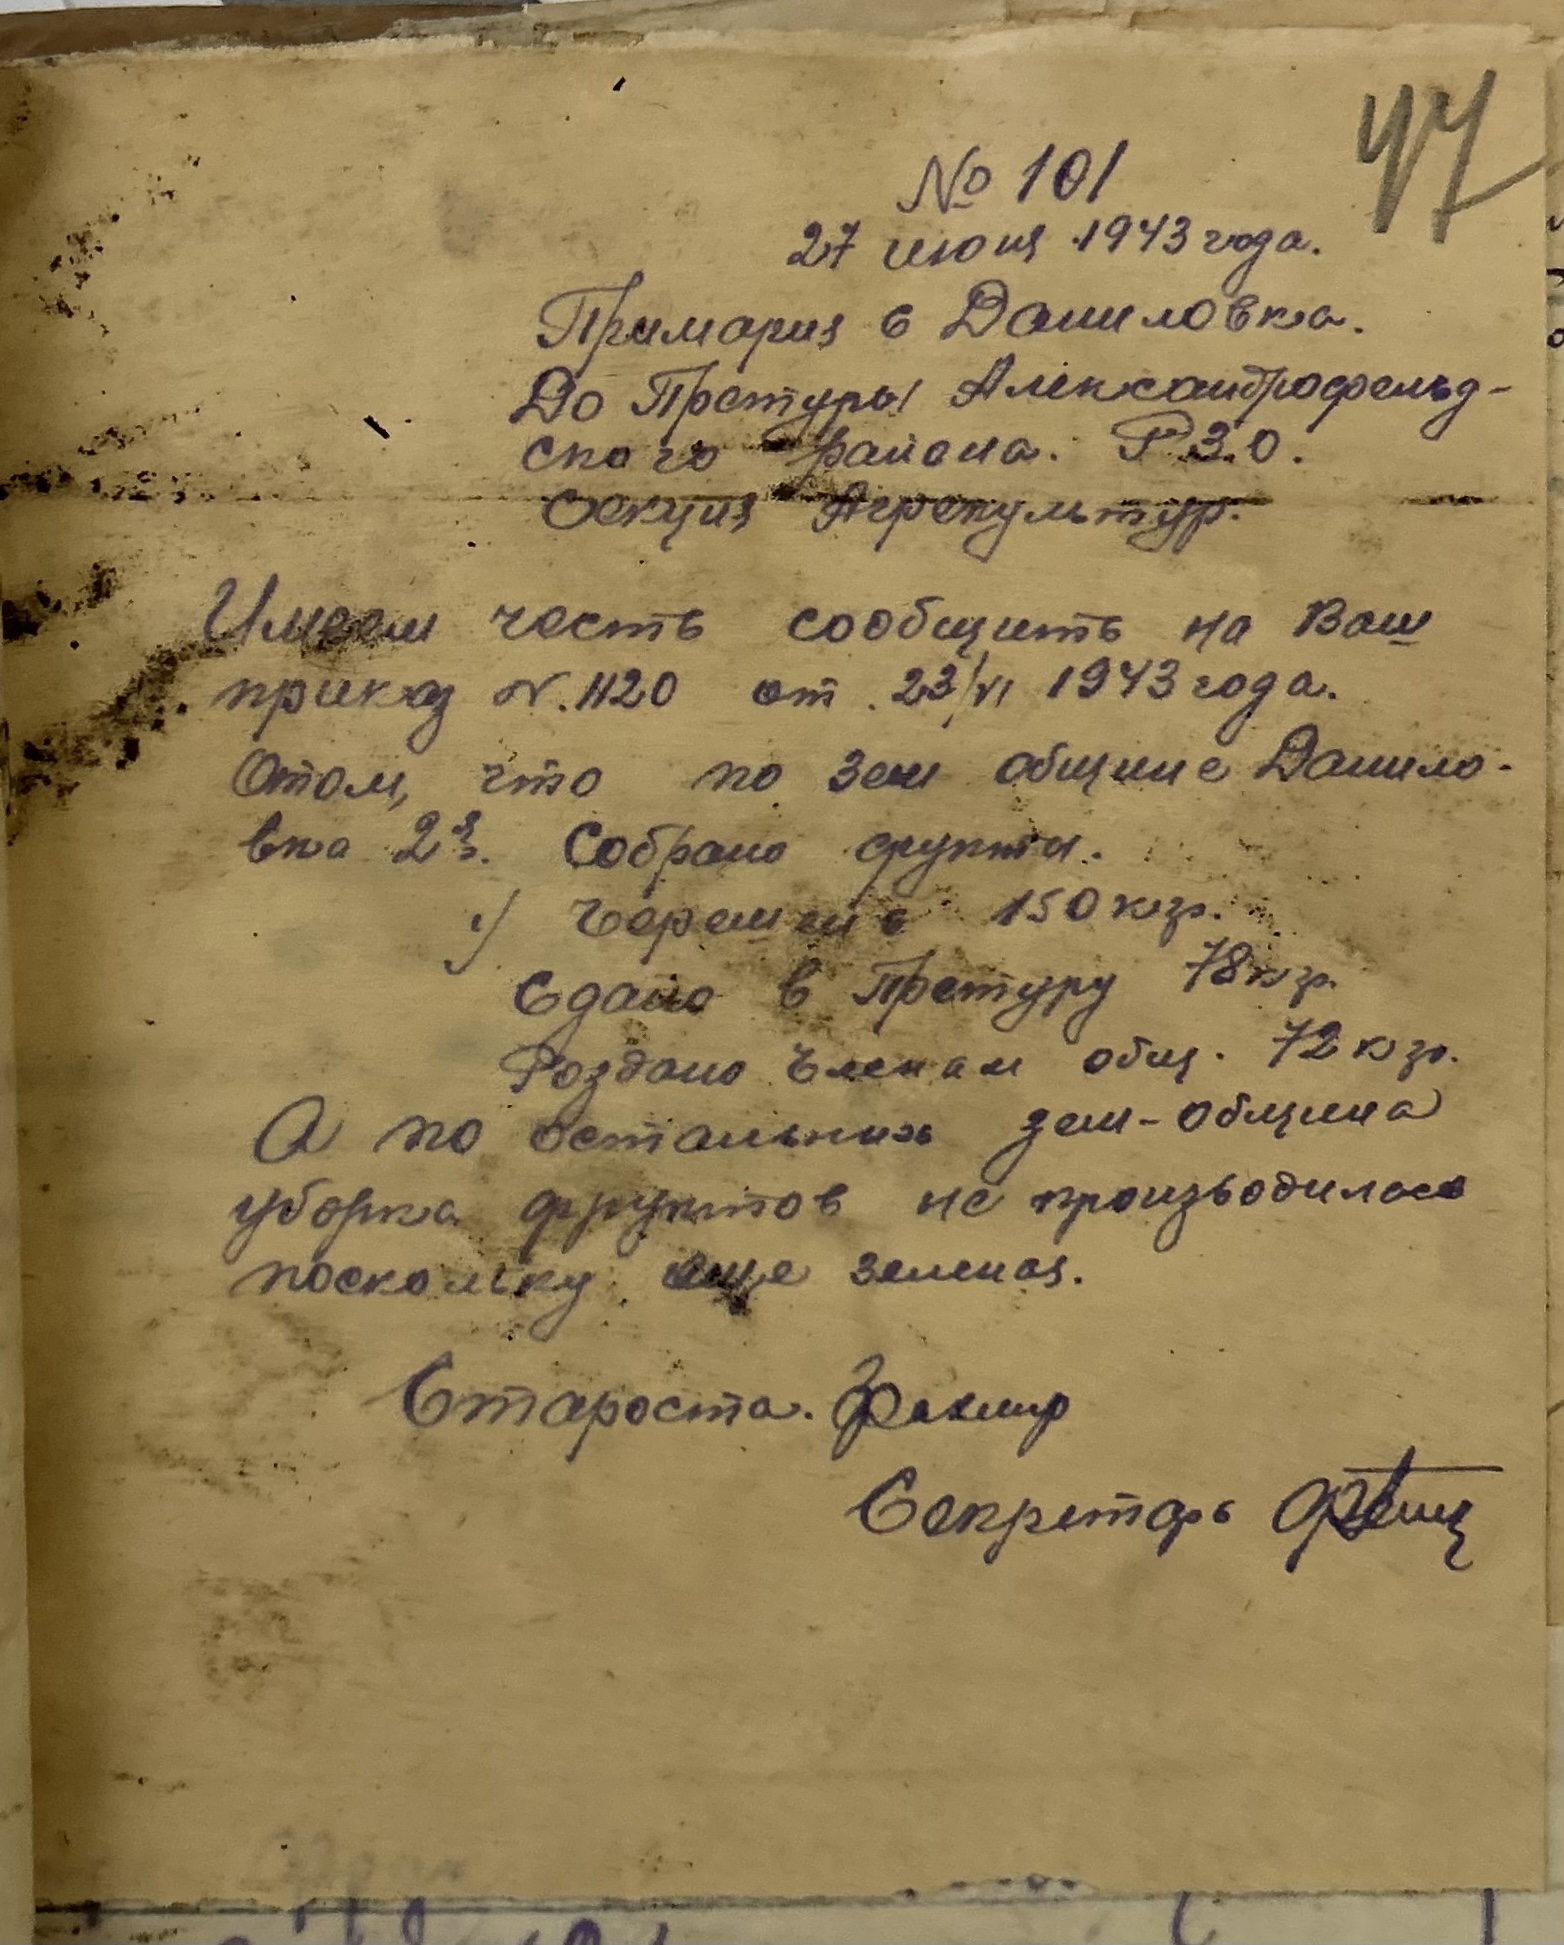 47
№ 101
27 июня 1943 года.
Примария с Даниловка.
До Претуры Александрофельд-
ского района. Р.З.О.
Секция Агрекультур.
Имеем честь сообщить на Ваш
приказ N. 1120 от 23/VI 1943 года.
Отом, что по Зем общине Данило-
вка 2я. Собрано фрукты.
1) Черешне 150 кгр.
Сдано в Претуру 78 кгр.
Роздано Членам общ. 72 кгр.
А по остальних зем-община
уборка фруктов не производилась
поскольку еще зеленая.
Староста.
Секретарь